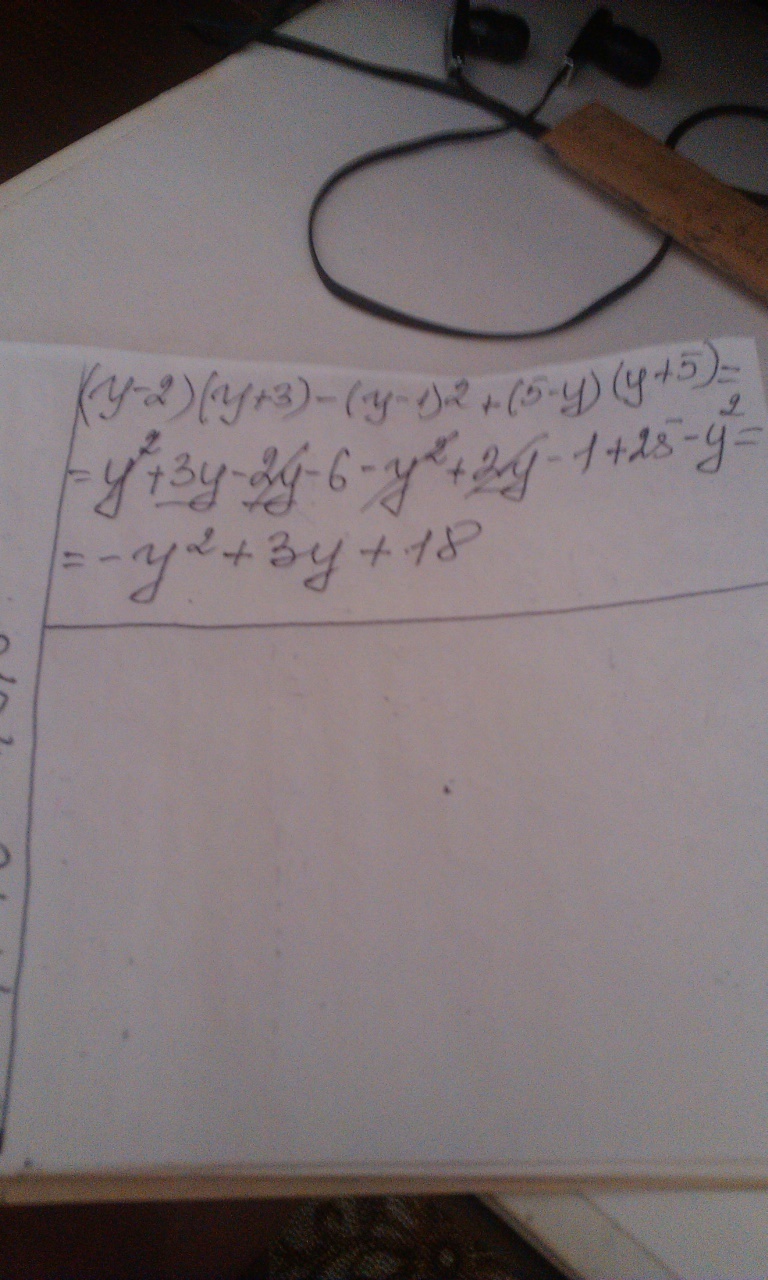 (y-2)(y+3)-(y-1)2+(5-y)(y+5)=
=y²+3y-2y-6-y²+2y-1+25-y²=
=-y²+3y+18